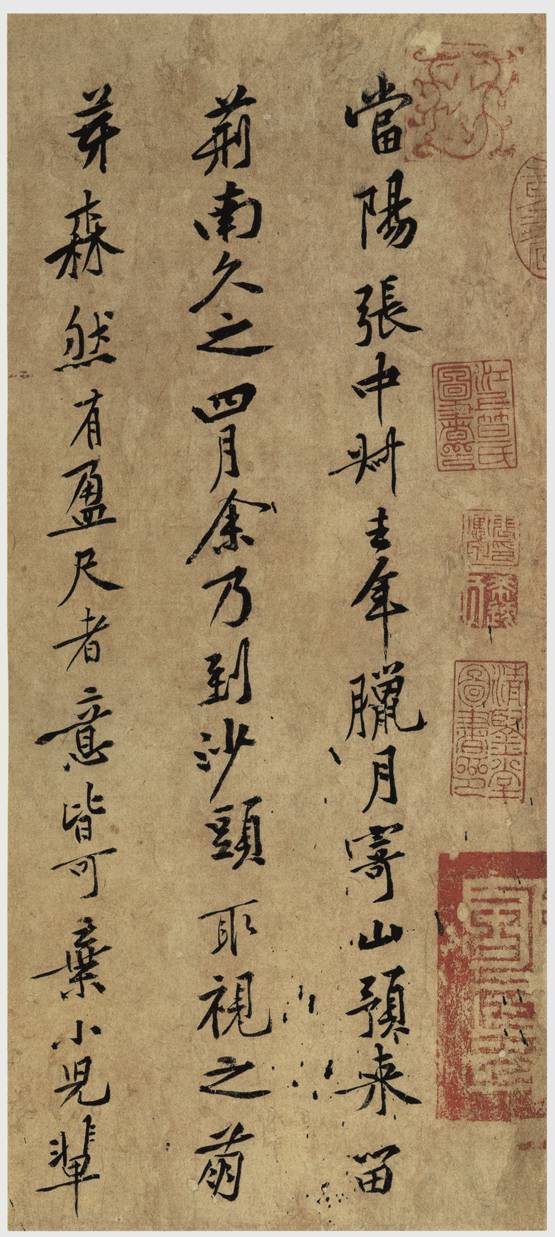 江上笪氏圖書印
清鑒堂圖書印
當陽張中叔去年臘月寄山預來留
荊南久之四月余乃到沙頭取視之萌
芽森然有盈尺者意皆可棄小兒輩